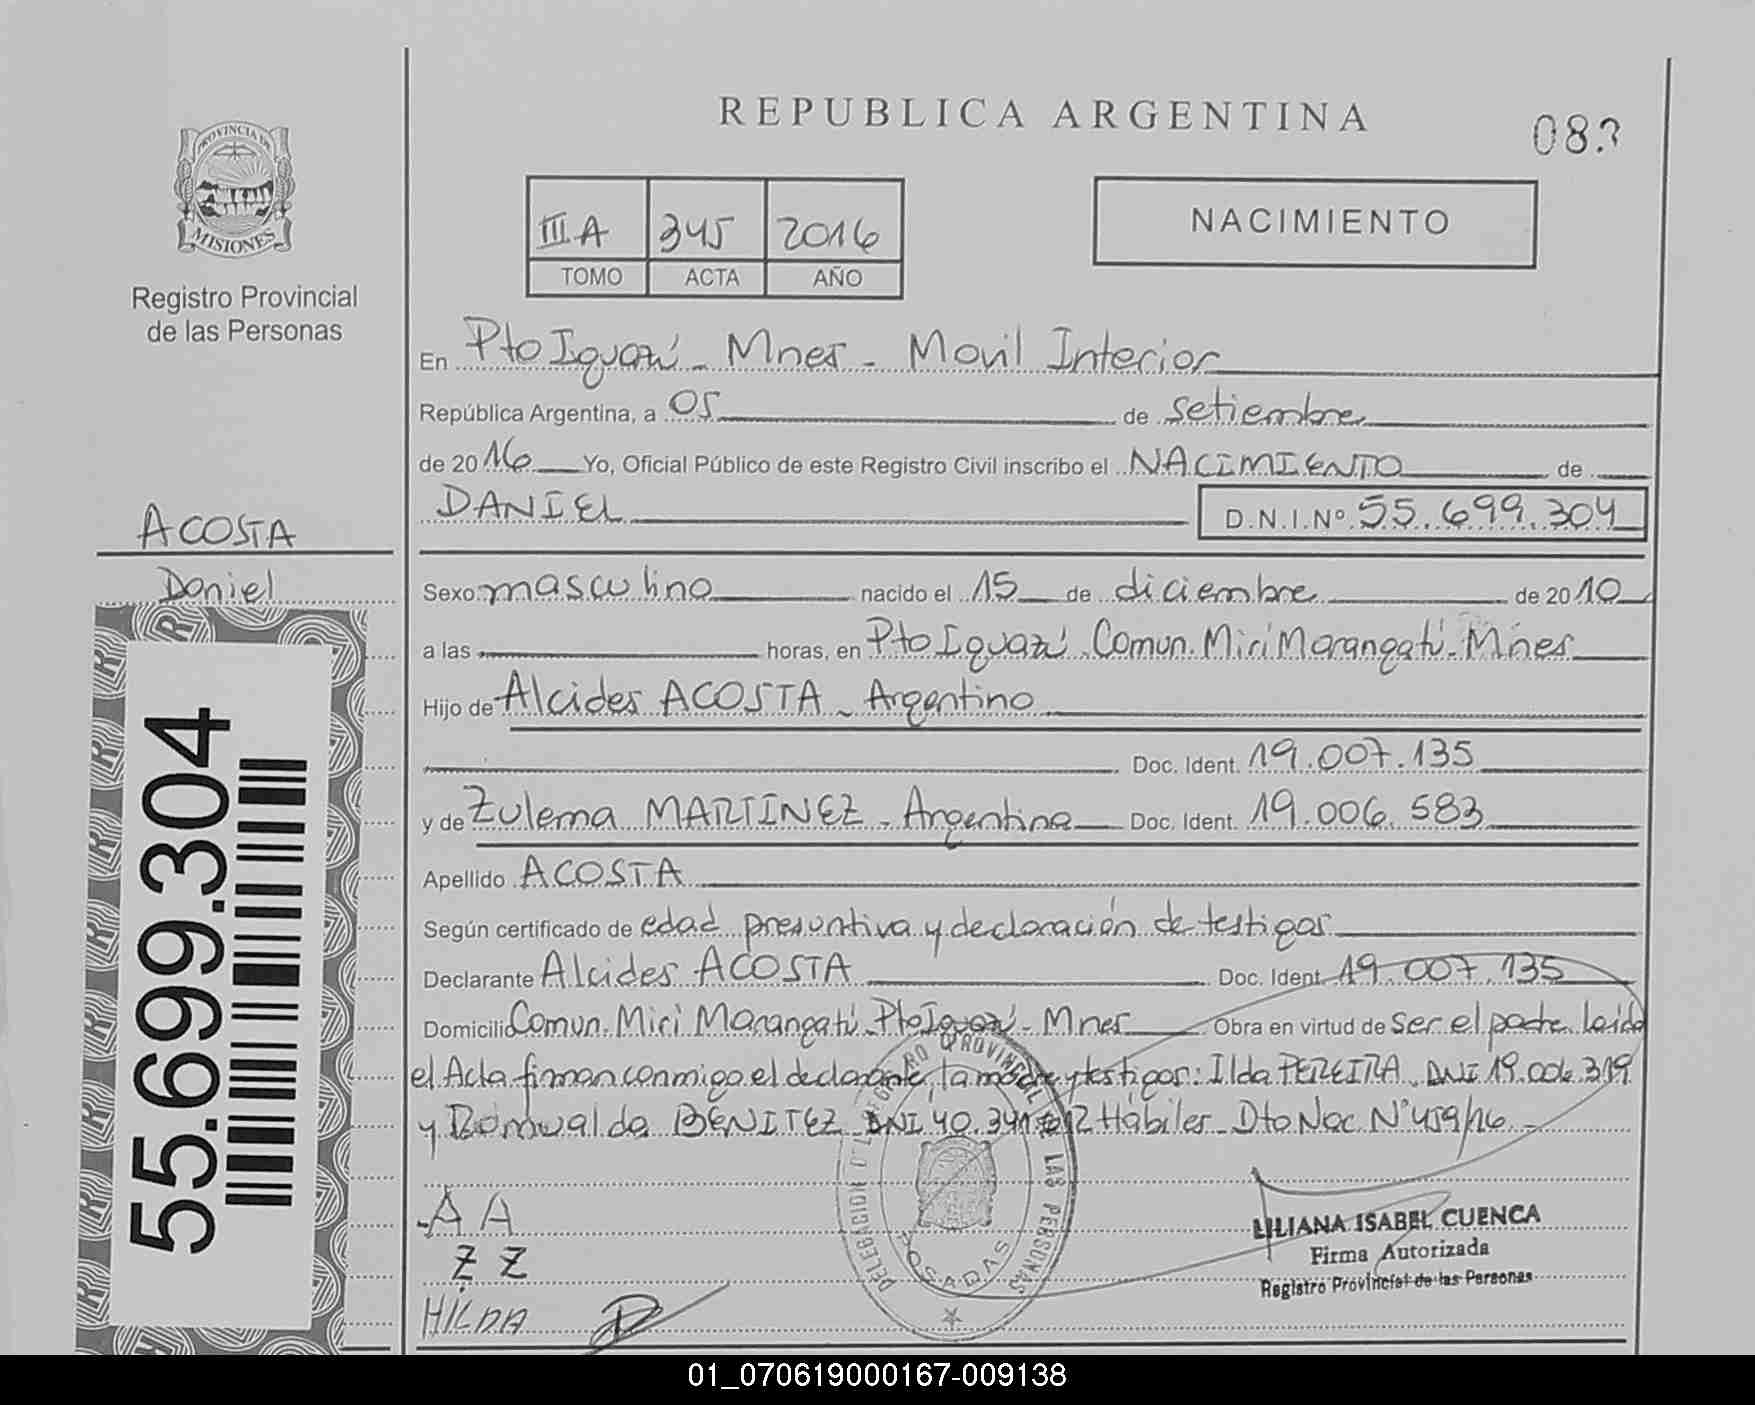 REPUBLICA ARGENTINA
08
PROVINCIA DE
MISIONES
Registro Provincial
de las Personas
III A 345 2016
TOMO ACTA AÑO
NACIMIENTO
En Pto Iguazú - Mnes - Movil Interior
República Argentina, a 05 de setiembre
de 2016 Yo, Oficial Público de este Registro Civil inscribo el NACIMIENTO de
DANIEL D.N.I.Nº 55.699.304
ACOSTA
Daniel
Sexo masculino nacido el 15 de diciembre de 2010
a las horas, en Pto Iguazú Comun. Miri Marangatú - Mnes
Hijo de Alcides ACOSTA - Argentino
Doc. Ident. 19.007.135
y de Zulema MARTINEZ - Argentina Doc. Ident. 19.006.583
Apellido ACOSTA
Según certificado de edad presuntiva y declaración de testigos
Declarante Alcides ACOSTA Doc. Ident. 19.007.135
Domicilio Comun. Miri Marangatú - Pto Iguazú - Mnes Obra en virtud de ser el padre leída
el Acta firman conmigo el declarante, la madre y testigos: Ilda PEREIRA DNI 19.006.319
y Romualdo BENITEZ DNI 40.341. Hábiles - Dto Nac N° 459/16 -
55.699.304
DELEGACION DEL REGISTRO PROVINCIAL DE LAS PERSONAS
POSADAS
A A
Z Z
HILDA
LILIANA ISABEL CUENCA
Firma Autorizada
Registro Provincial de las Personas
01_070619000167-009138